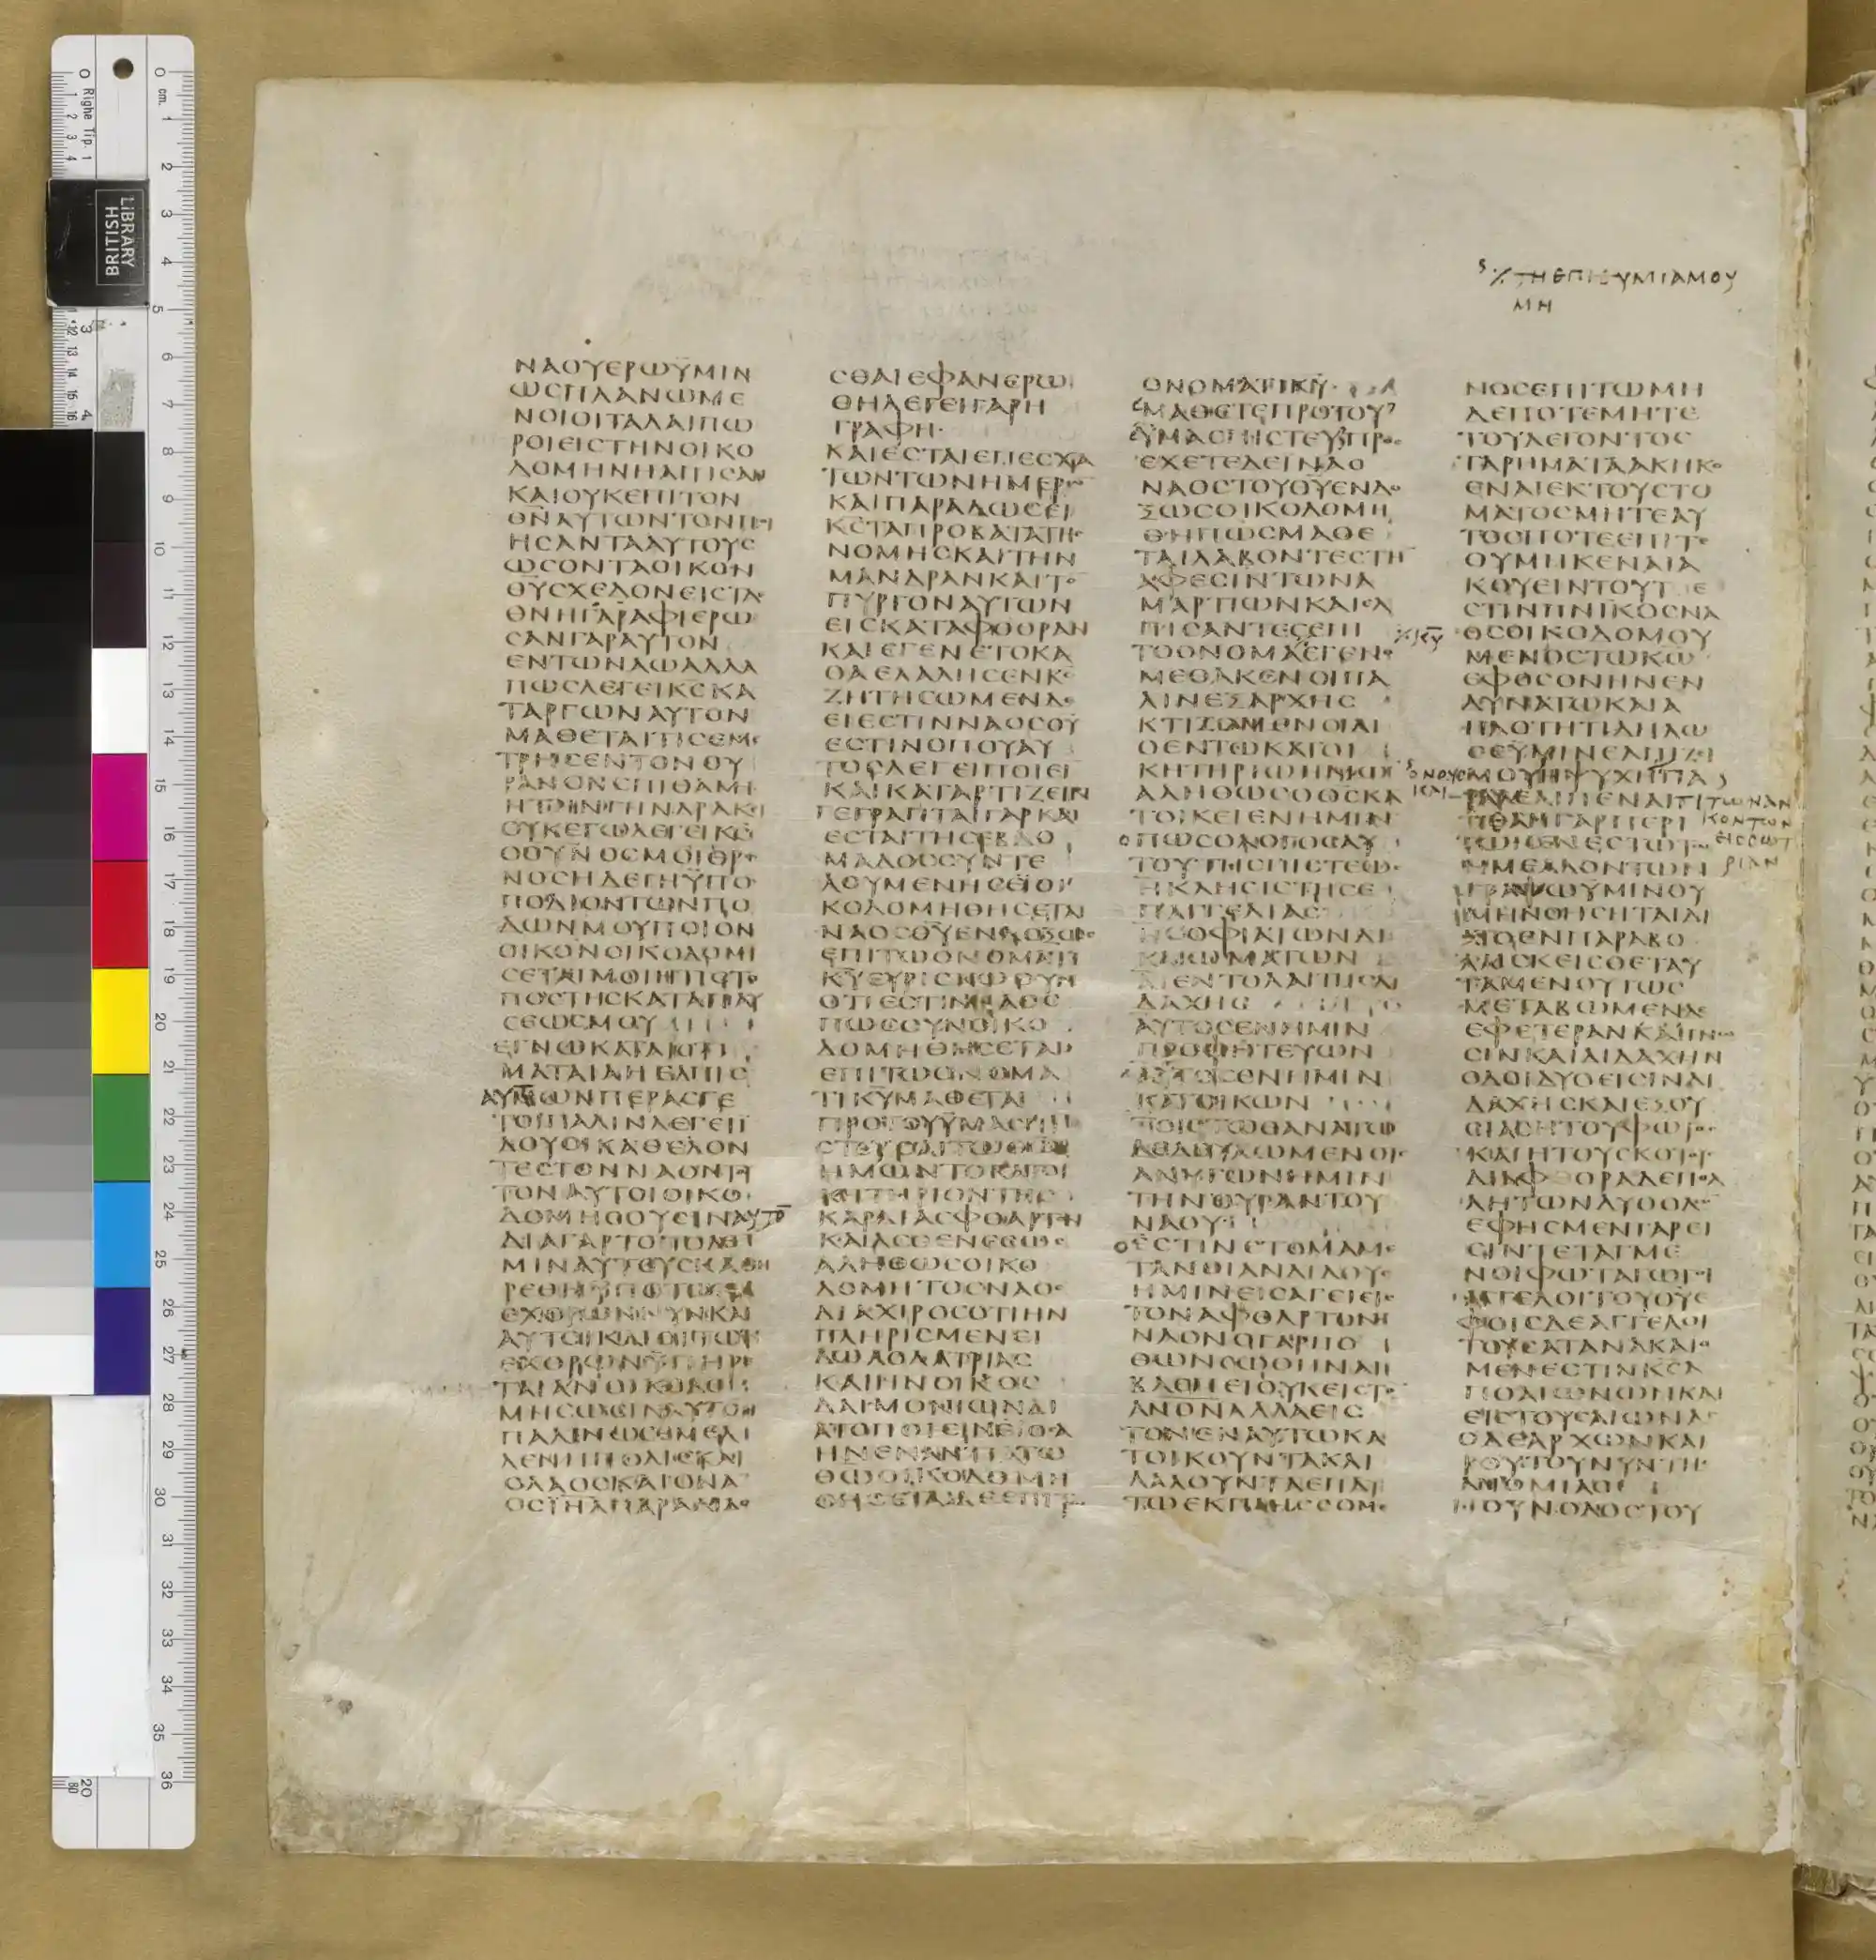 BRITISH LIBRARY
Righe Tip. 1
cm.
ϗ ⁒ ΤΗ ΕΠΙΘΥΜΙΑ ΜΟΥ
ΜΗ
ΝΑΟΥΕΡΩΫΜΙΝ
ΩϹΠΛΑΝΩΜΕ
ΝΟΙΟΙΤΑΛΑΙΠΩ
ΡΟΙΕΙϹΤΗΝΟΙΚΟ
ΔΟΜΗΝΗΛΠΙϹΑΝ
ΚΑΙΟΥΚΕΠΙΤΟΝ
ΘΝΑΥΤΩΝΤΟΝΠΟΙ
ΗϹΑΝΤΑΑΥΤΟΥϹ
ΩϹΟΝΤΑΟΙΚΟΝ
ΘΥϹΧΕΔΟΝΕΙϹΤΑ
ΘΝΗΓΑΡΑΦΙΕΡΩ
ϹΑΝΓΑΡΑΥΤΟΝ
ΕΝΤΩΝΑΩΑΛΛΑ
ΠΩϹΛΕΓΕΙΚϹΚΑ
ΤΑΡΓΩΝΑΥΤΟΝ
ΜΑΘΕΤΑΙΤΙϹΕΜΕ
ΤΡΗϹΕΝΤΟΝΟΥ
ΡΑΝΟΝϹΠΙΘΑΜΗ
ΗΤΗΝΓΗΝΔΡΑΚΙ
ΟΥΚΕΓΩΛΕΓΕΙΚϹ
ΟΟΥΝΟϹΜΟΙΘΡΟ
ΝΟϹΗΔΕΓΗΫΠΟ
ΠΟΔΙΟΝΤΩΝΠΟ
ΔΩΝΜΟΥΠΟΙΟΝ
ΟΙΚΟΝΟΙΚΟΔΟΜΗ
ϹΕΤΑΙΜΟΙΗΤΙϹΤΟ
ΠΟϹΤΗϹΚΑΤΑΠΑΥ
ϹΕΩϹΜΟΥ
ΕΓΝΩΚΑΤΑΙΟΤΙ
ΜΑΤΑΙΑΗΕΛΠΙϹ
ΑΥΤΩΝΠΕΡΑϹΓΕ
ΤΟΙΠΑΛΙΝΛΕΓΕΙΙ
ΔΟΥΟΙΚΑΘΕΛΟΝ
ΤΕϹΤΟΝΝΑΟΝΤΟΥ
ΤΟΝΑΥΤΟΙΟΙΚΟ
ΔΟΜΗϹΟΥϹΙΝΑΥΤΟ
ΔΙΑΓΑΡΤΟΠΟΛΕ
ΜΙΝΑΥΤΟΥϹΚΑΘΗ
ΡΕΘΗΫΠΟΤΩΝ
ΕΧΘΡΩΝΝΥΝΚΑΙ
ΑΥΤΟΙΚΑΙΟΙΤΩΝ
ΕΧΘΡΩΝΫΠΗΡΕ
ΤΑΙΑΝΟΙΚΟΔΟ
ΜΗϹΩϹΙΝΑΥΤΟΝ
ΠΑΛΙΝΩϹΕΜΕΛ
ΛΕΝΗΠΟΛΙϹΚΑΙ
ΟΛΑΟϹΚΑΙΟΝΑ
ΟϹΙΗΛΠΑΡΑΔΙΔΟ
ϹΘΑΙΕΦΑΝΕΡΩ
ΘΗΛΕΓΕΙΓΑΡΗ
ΓΡΑΦΗ·
ΚΑΙΕϹΤΑΙΕΠΕϹΧΑ
ΤΩΝΤΩΝΗΜΕΡΩ
ΚΑΙΠΑΡΑΔΩϹΕΙ
ΚϹΤΑΠΡΟΒΑΤΑΤΗϹ
ΝΟΜΗϹΚΑΙΤΗΝ
ΜΑΝΔΡΑΝΚΑΙΤΟ
ΠΥΡΓΟΝΑΥΤΩΝ
ΕΙϹΚΑΤΑΦΘΟΡΑΝ
ΚΑΙΕΓΕΝΕΤΟΚΑ
ΟΑΕΛΑΛΗϹΕΝΚϹ
ΖΗΤΗϹΩΜΕΝΔΕ
ΕΙΕϹΤΙΝΝΑΟϹΘΥ
ΕϹΤΙΝΟΠΟΥΑΥ
ΤΟϹΛΕΓΕΙΠΟΙΕΙ
ΚΑΙΚΑΤΑΡΤΙΖΕΙΝ
ΓΕΓΡΑΠΤΑΙΓΑΡΚΑΙ
ΕϹΤΑΙΤΗϹΕΒΔΟ
ΜΑΔΟϹϹΥΝΤΕ
ΛΟΥΜΕΝΗϹΟΙ
ΚΟΔΟΜΗΘΗϹΕΤΑΙ
ΝΑΟϹΘΥΕΝΔΟΞΩϹ
ΕΠΙΤΩΟΝΟΜΑΤΙ
ΚΥΕΥΡΙϹΚΩΟΥΝ
ΟΤΙΕϹΤΙΝΝΑΟϹ
ΠΩϹΟΥΝΟΙΚΟ
ΔΟΜΗΘΗϹΕΤΑΙ
ΕΠΙΤΩΟΝΟΜΑ
ΤΙΚΥΜΑΘΕΤΑΙ
ΠΡΟΤΟΥΫΜΑϹΠΙ
ϹΤΕΥϹΑΙΤΩΘΩ
ΗΜΩΝΤΟΚΑΤΟΙ
ΚΗΤΗΡΙΟΝΤΗϹ
ΚΑΡΔΙΑϹΦΘΑΡΤΟΝ
ΚΑΙΑϹΘΕΝΕϹΩϹ
ΑΛΗΘΩϹΟΙΚΟ
ΔΟΜΗΤΟϹΝΑΟϹ
ΔΙΑΧΙΡΟϹΟΤΙΗΝ
ΠΛΗΡΙϹΜΕΝΕΙ
ΔΩΛΟΛΑΤΡΙΑϹ
ΚΑΙΗΝΟΙΚΟϹ
ΔΑΙΜΟΝΙΩΝΔΙ
ΑΤΟΠΟΙΕΙΝΟϹΑ
ΗΝΕΝΑΝΤΙΑΤΩ
ΘΩΟΙΚΟΔΟΜΗ
ΘΗϹΕΤΑΙΔΕΕΠΙΤΩ
ΟΝΟΜΑΤΙΚΥ·
ΜΑΘΕΤΕΠΡΟΤΟΥ
ΫΜΑϹΠΙϹΤΕΥϹ
ΕΧΕΤΕΔΕΙΝΑΟ
ΝΑΟϹΤΟΥΘΥΕΝΔΟ
ΞΩϹΟΙΚΟΔΟΜΗ
ΘΗΠΩϹΜΑΘΕ
ΤΑΙΛΑΒΟΝΤΕϹΤΗ
ΑΦΕϹΙΝΤΩΝΑ
ΜΑΡΤΙΩΝΚΑΙΕΛ
ΠΙϹΑΝΤΕϹΕΠΙ
ΤΟΟΝΟΜΑΕΓΕΝΟ
⁒ΚΥ
ΜΕΘΑΚΕΝΟΙΠΑ
ΛΙΝΕΞΑΡΧΗϹ
ΚΤΙΖΟΜΕΝΟΙΔΙ
ΟΕΝΤΩΚΑΤΟΙ
ΚΗΤΗΡΙΩΗΜΩΝ
ΑΛΗΘΩϹΟΘϹΚΑ
ΤΟΙΚΕΙΕΝΗΜΙΝ
ΠΩϹΟΛΟΓΟϹΑΥ
ΤΟΥΤΗϹΠΙϹΤΕΩϹ
ΗΚΛΗϹΙϹΤΗϹΕ
ΠΑΓΓΕΛΙΑϹ
ΗϹΟΦΙΑΤΩΝΔΙ
ΚΑΙΩΜΑΤΩΝ
ΑΙΕΝΤΟΛΑΙΤΗϹΔΙ
ΔΑΧΗϹ
ΑΥΤΟϹΕΝΗΜΙΝ
ΠΡΟΦΗΤΕΥΩΝ
ΑΥΤΟϹΕΝΗΜΙΝ
ΚΑΤΟΙΚΩΝ
ΤΟΙϹΤΩΘΑΝΑΤΩ
ΔΕΔΟΥΛΩΜΕΝΟΙϹ
ΑΝΥΓΩΝΗΜΙΝ
ΤΗΝΘΥΡΑΝΤΟΥ
ΝΑΟΥ
ΟΕϹΤΙΝϹΤΟΜΑΜΕ
ΤΑΝΟΙΑΝΔΙΔΟΥϹ
ΗΜΙΝΕΙϹΑΓΕΙΕΙϹ
ΤΟΝΑΦΘΑΡΤΟΝ
ΝΑΟΝΟΓΑΡΠΟ
ΘΩΝϹΩΘΗΝΑΙ
ΒΛΕΠΕΙΟΥΚΕΙϹΤΟ
ΑΝΟΝΑΛΛΑΕΙϹ
ΤΟΝΕΝΑΥΤΩΚΑ
ΤΟΙΚΟΥΝΤΑΚΑΙ
ΛΑΛΟΥΝΤΑΕΠΑΥ
ΤΩΕΚΠΛΗϹϹΟΜΕ
ΝΟϹΕΠΙΤΩΜΗ
ΔΕΠΟΤΕΜΗΤΕ
ΤΟΥΛΕΓΟΝΤΟϹ
ΤΑΡΗΜΑΤΑΑΚΗΚΟ
ΕΝΑΙΕΚΤΟΥϹΤΟ
ΜΑΤΟϹΜΗΤΕΑΥ
ΤΟϹΠΟΤΕΕΠΙΤΕ
ΘΥΜΗΚΕΝΑΙΑ
ΚΟΥΕΙΝΤΟΥΤΟΕ
ϹΤΙΝΠΝΙΚΟϹΝΑ
ΟϹΟΙΚΟΔΟΜΟΥ
ΜΕΝΟϹΤΩΚΩ
ΕΦΟϹΟΝΗΝΕΝ
ΔΥΝΑΤΩΚΑΙΑ
ΠΛΟΤΗΤΙΔΗΛΩ
ϹΕΫΜΙΝΕΛΠΙΖΙ
ΜΟΥΗΨΥΧΗ
ΤΙΤΩΝΑΝ
ΗΚΟΝΤΩΝ
ΕΙϹϹΩΤ
ΡΙΑΝ
ΜΕΛΛΟΝΤΩΝ
ΓΡΑΦΩΫΜΙΝΟΥ
ΜΗΝΟΗϹΗΤΑΙΔΙ
ΑΤΟΕΝΠΑΡΑΒΟ
ΛΑΙϹΚΕΙϹΘΕΤΑΥ
ΤΑΜΕΝΟΥΤΩϹ
ΜΕΤΑΒΩΜΕΝΔΕ
ΕΦΕΤΕΡΑΝΚΑΙΓΝΩ
ϹΙΝΚΑΙΔΙΔΑΧΗΝ
ΟΔΟΙΔΥΟΕΙϹΙΝΔΙ
ΔΑΧΗϹΚΑΙΕΞΟΥ
ϹΙΑϹΗΤΟΥΦΩΤΟϹ
ΚΑΙΗΤΟΥϹΚΟΤΟΥ
ΔΙΑΦΟΡΑΔΕΠΟΛ
ΛΗΤΩΝΔΥΟΟΔΩ
ΕΦΗϹΜΕΝΓΑΡΕΙ
ϹΙΝΤΕΤΑΓΜΕ
ΝΟΙΦΩΤΑΓΩΓΟΙ
ΑΓΓΕΛΟΙΤΟΥΘΥΕ
ΦΟΙϹΔΕΑΓΓΕΛΟΙ
ΤΟΥϹΑΤΑΝΑΚΑΙΟ
ΜΕΝΕϹΤΙΝΚϹΑ
ΠΟΑΙΩΝΩΝΚΑΙ
ΕΙϹΤΟΥϹΑΙΩΝΑϹ
ΟΔΕΑΡΧΩΝΚΑΙ
ΡΟΥΤΟΥΝΥΝΤΗϹ
ΑΝΟΜΙΑϹ
ΗΟΥΝΟΔΟϹΤΟΥ